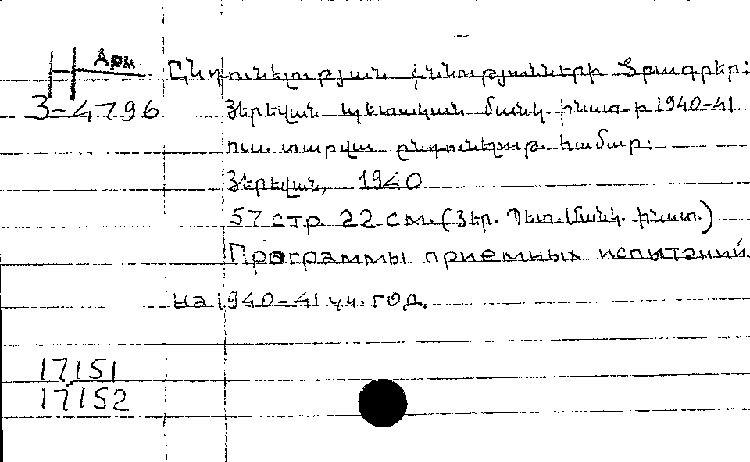 Արм
Ընդունելության քննությունների Ծրագրեր:
3-4796
Յերևվան պետական մանկ. ինստ-ի 1940-41
ուս. տարվա ընդունելութ. համար:
Յերեվան, 1940
57 стр 22 см. (Յեր. Պետ. Մանկ. ինստ.)
Программы приемных испытаний
на 1940-41 уч. год.
17151
17152